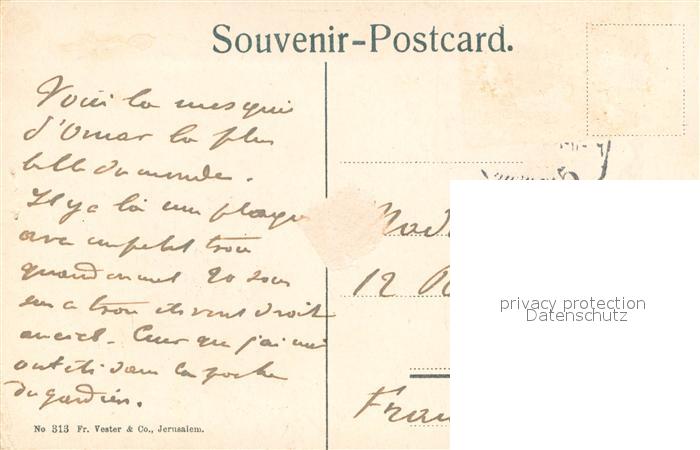 Souvenir-Postcard.
Voici la mosquée
d'Omar la plus
belle du monde.
Il y a là une plaque
avec un petit trou
quand on met 20 sous
sur ce trou ils vont droit
au ciel. Ceux que j'ai mis
ont été dans la poche
du gardien.
12
Fran
No 313 Fr. Vester & Co., Jerusalem.
privacy protection
Datenschutz